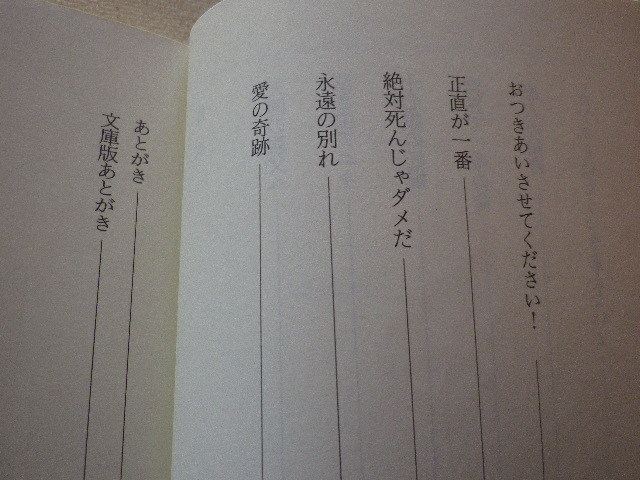 おつきあいさせてください!
正直が一番
絶対死んじゃダメだ
永遠の別れ
愛の奇跡
あとがき
文庫版あとがき